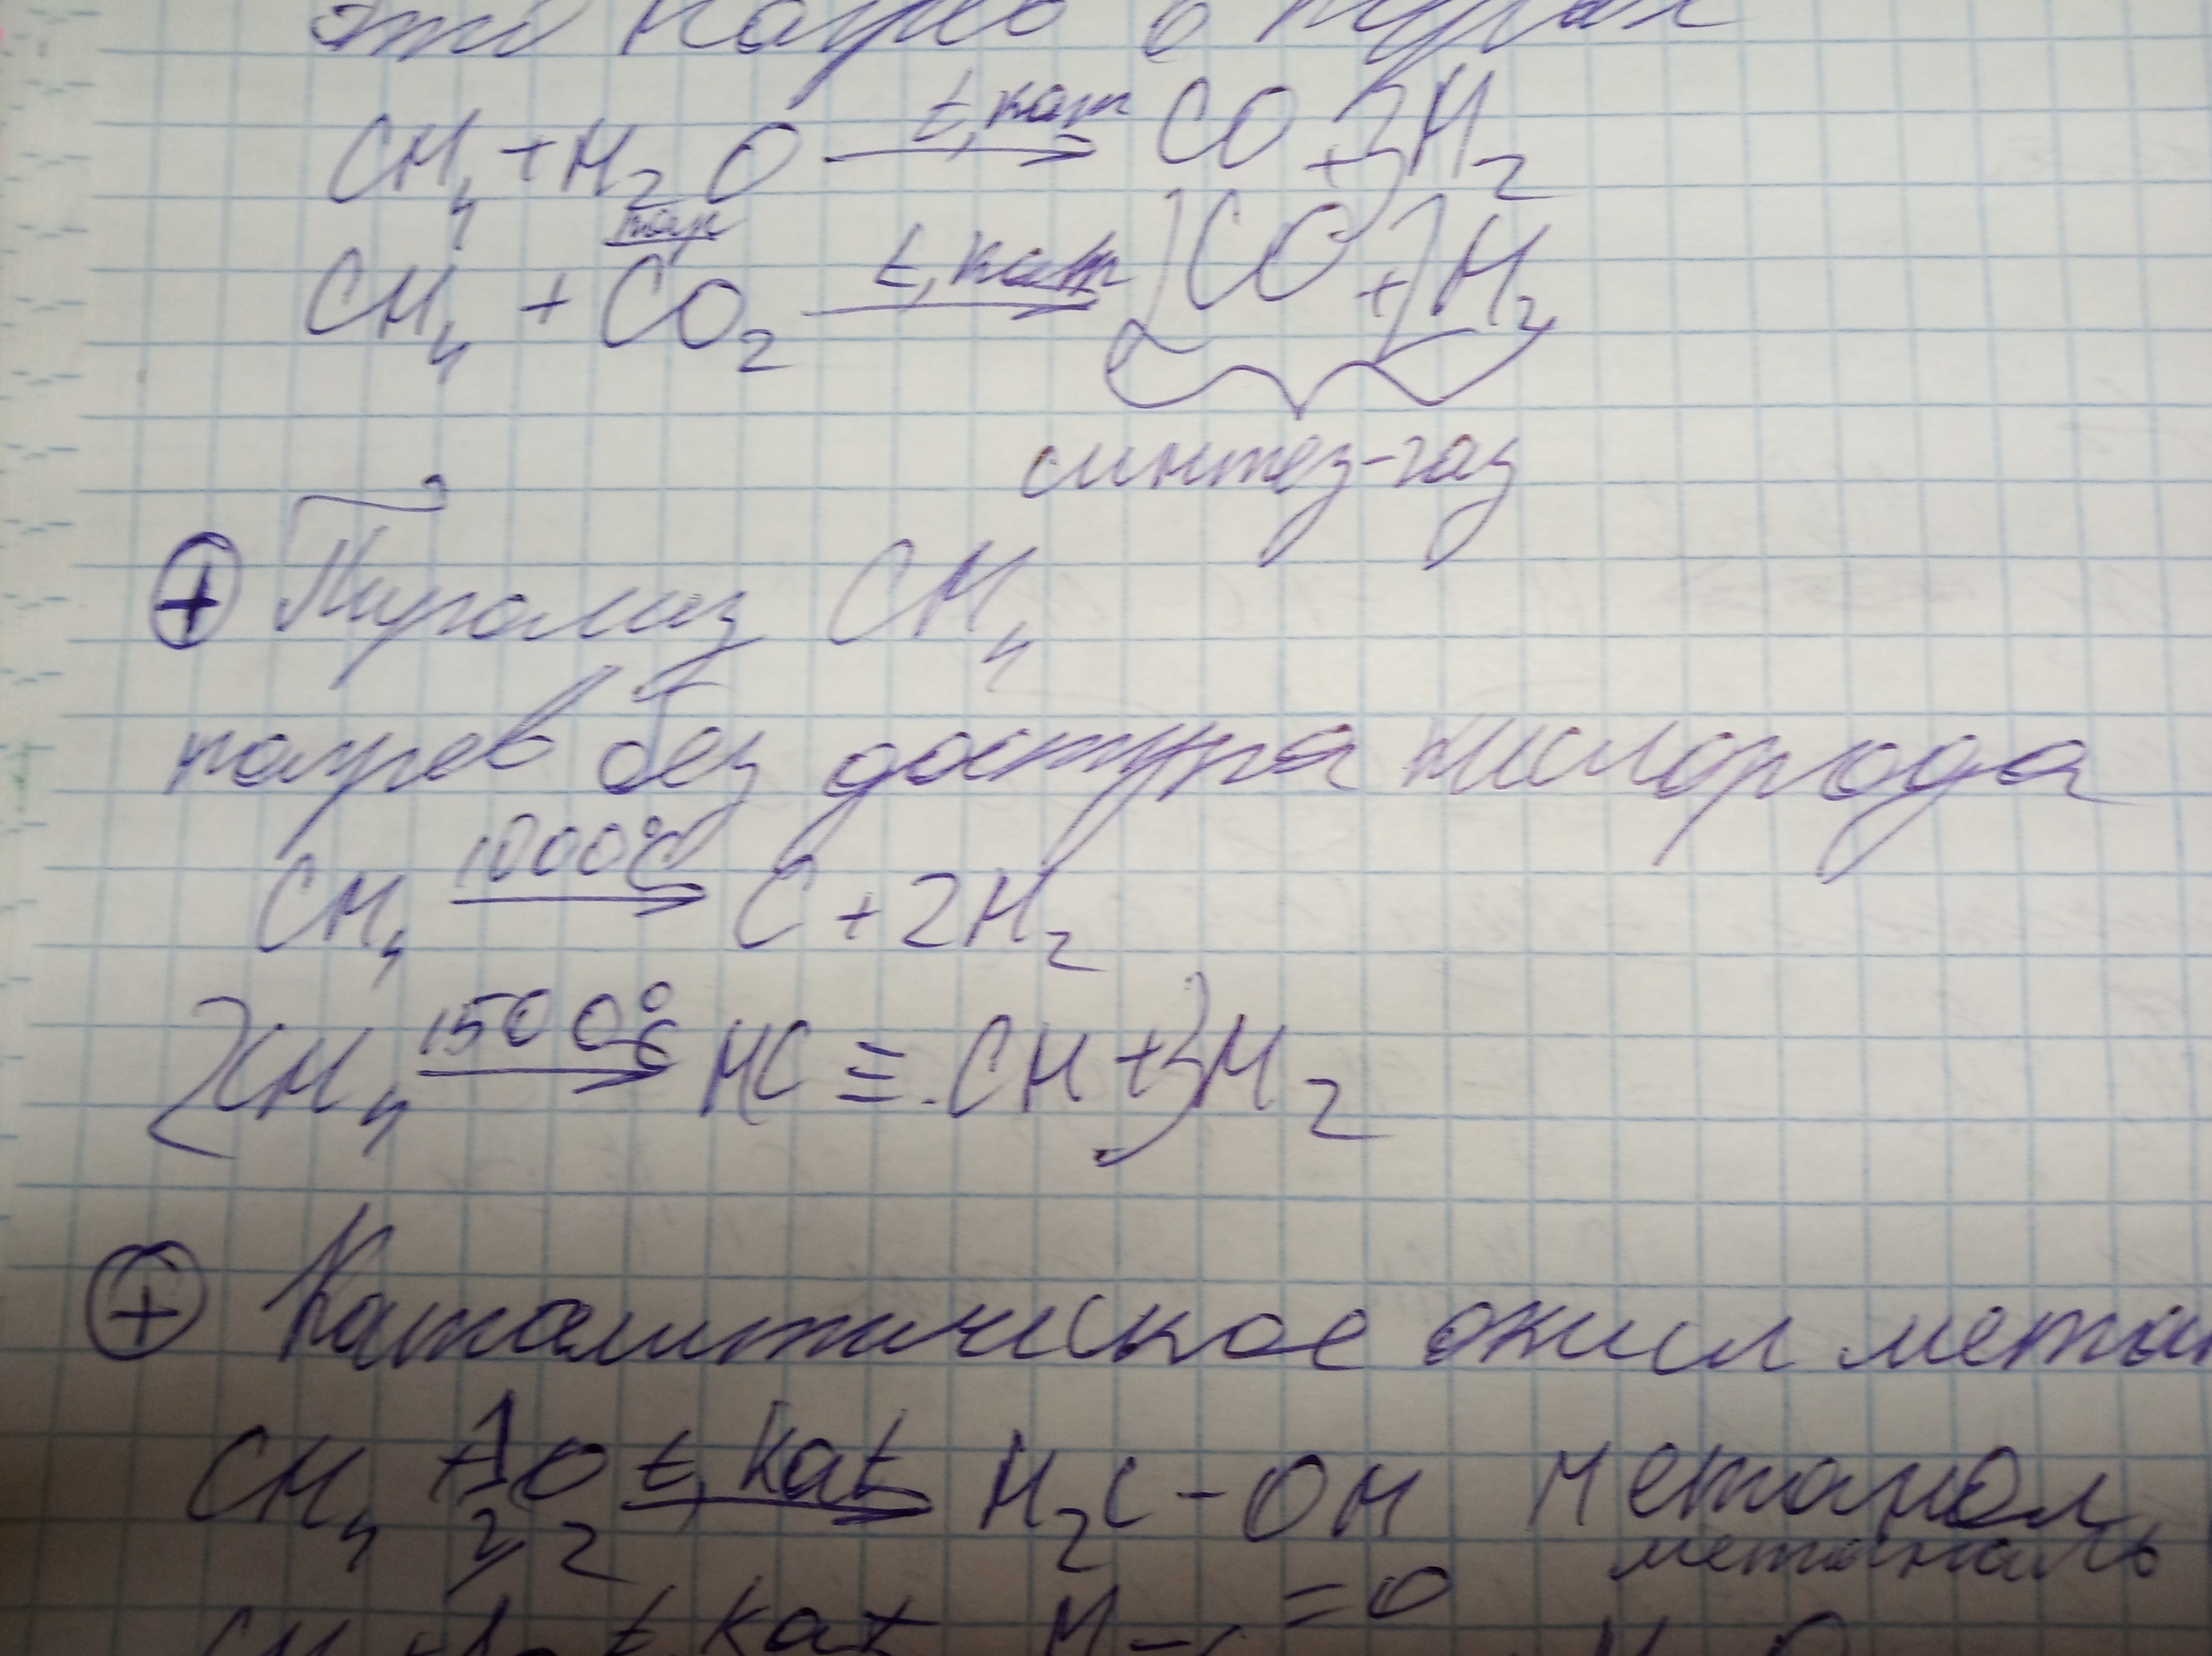 это нагрев в трубах
CH₄ + H₂O t, кат → CO + 3H₂
пар
CH₄ + CO₂ t, кат → 2CO + 2H₂
синтез-газ
⊕ Пиролиз CH₄
нагрев без доступа кислорода
CH₄ 1000°C → C + 2H₂
2CH₄ 1500°C → HC ≡ CH + 3H₂
⊕ Каталитическое окисл метан
CH₄ + 1/2 O₂ t, kat → H₂C - OH метанол
метаналь
t, kat H - C =O